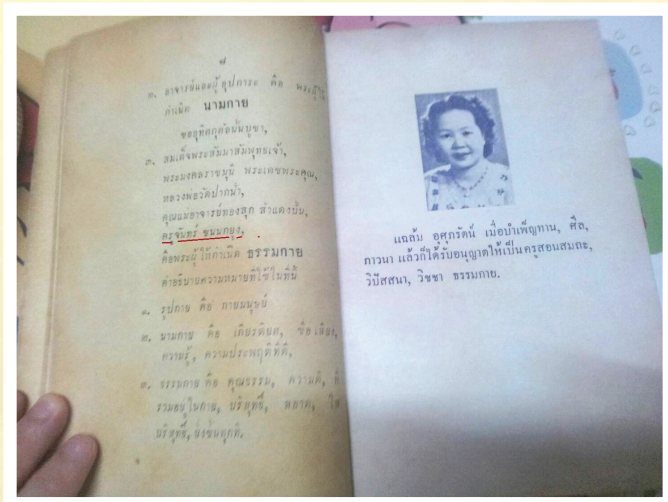 ๘
๒. อาจารย์และผู้อุปการะ คือ พระผู้ให้
กำเนิด นามกาย
ขออุทิศกุศลนั้นบูชา,
๓. สมเด็จพระสัมมาสัมพุทธเจ้า,
พระมงคลราชมุนี พระเดชพระคุณ,
หลวงพ่อวัดปากน้ำ,
คุณแม่อาจารย์ทองสุก สำแดงปั้น,
ครูจันทร์ ขนนกยูง,
คือพระผู้ให้กำเนิด ธรรมกาย
คำอธิบายความหมายที่ใช้ในที่นี้
๑. รูปกาย คือ กายมนุษย์
๒. นามกาย คือ เกียรติยศ, ชื่อเสียง,
ความรู้, ความประพฤติที่ดี,
๓. ธรรมกาย คือ คุณธรรม, ความดี, ที่
รวมอยู่ในกาย, บริสุทธิ์, พอาด, ใส
บริสุทธิ์,
แฉล้ม อุศุภรัตน์ เมื่อบำเพ็ญทาน, ศีล,
ภาวนา แล้วก็ได้รับอนุญาตให้เป็นครูสอนสมถะ,
วิปัสสนา, วิชชา ธรรมกาย.